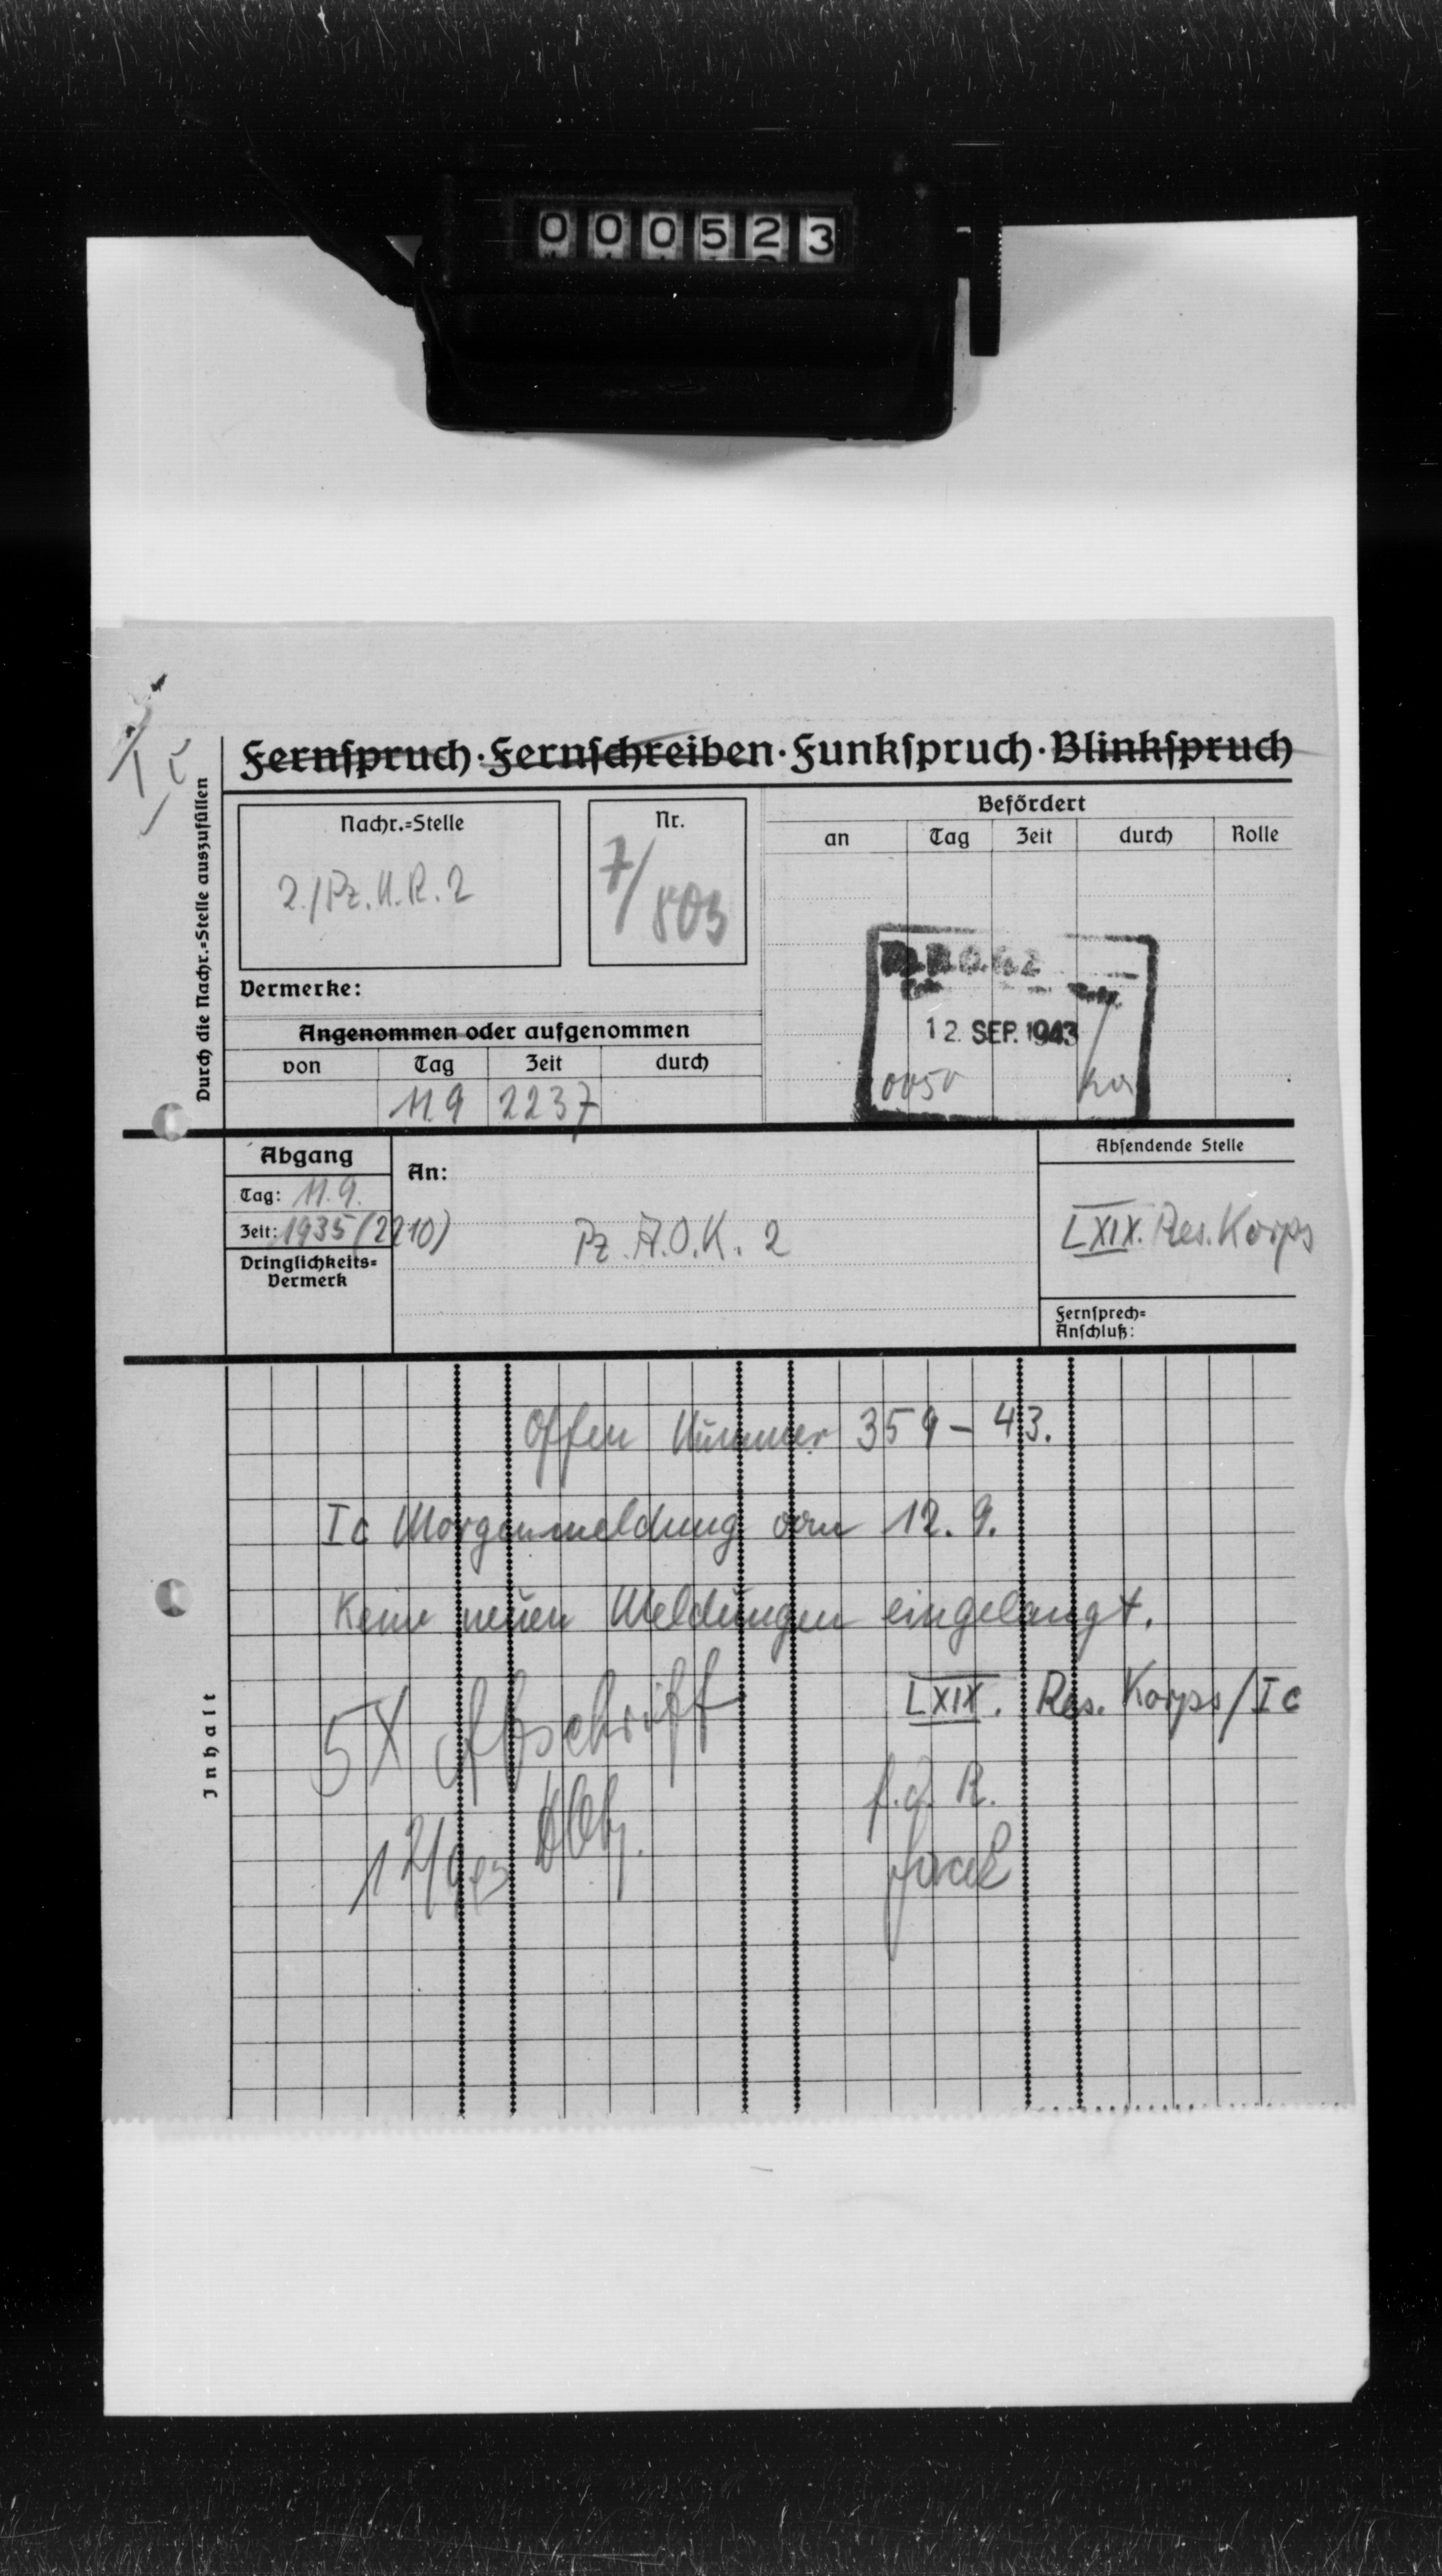 000523
Ic
Fernspruch · Fernschreiben · Funkspruch · Blinkspruch
Durch die Nachr.=Stelle auszufüllen
Nachr.=Stelle
2./Pz.N.R.2
Nr.
7/803
Befördert
an Tag Zeit durch Rolle
Vermerke:
Angenommen oder aufgenommen
von Tag Zeit durch
11 9 2237
12. SEP. 1943
0050
Abgang
Tag: 11.9.
Zeit: 1935 (2210)
Dringlichkeits=
Vermerk
An:
Pz.A.O.K. 2
Absendende Stelle
LXIX. Res. Korps
Fernsprech=
Anschluß:
Inhalt
Offen Nummer 359 – 43.
Ic Morgenmeldung vom 12.9.
Keine neuen Meldungen eingelangt.
LXIX. Res. Korps/Ic
5X Abschrift
f.d.R.
12/9